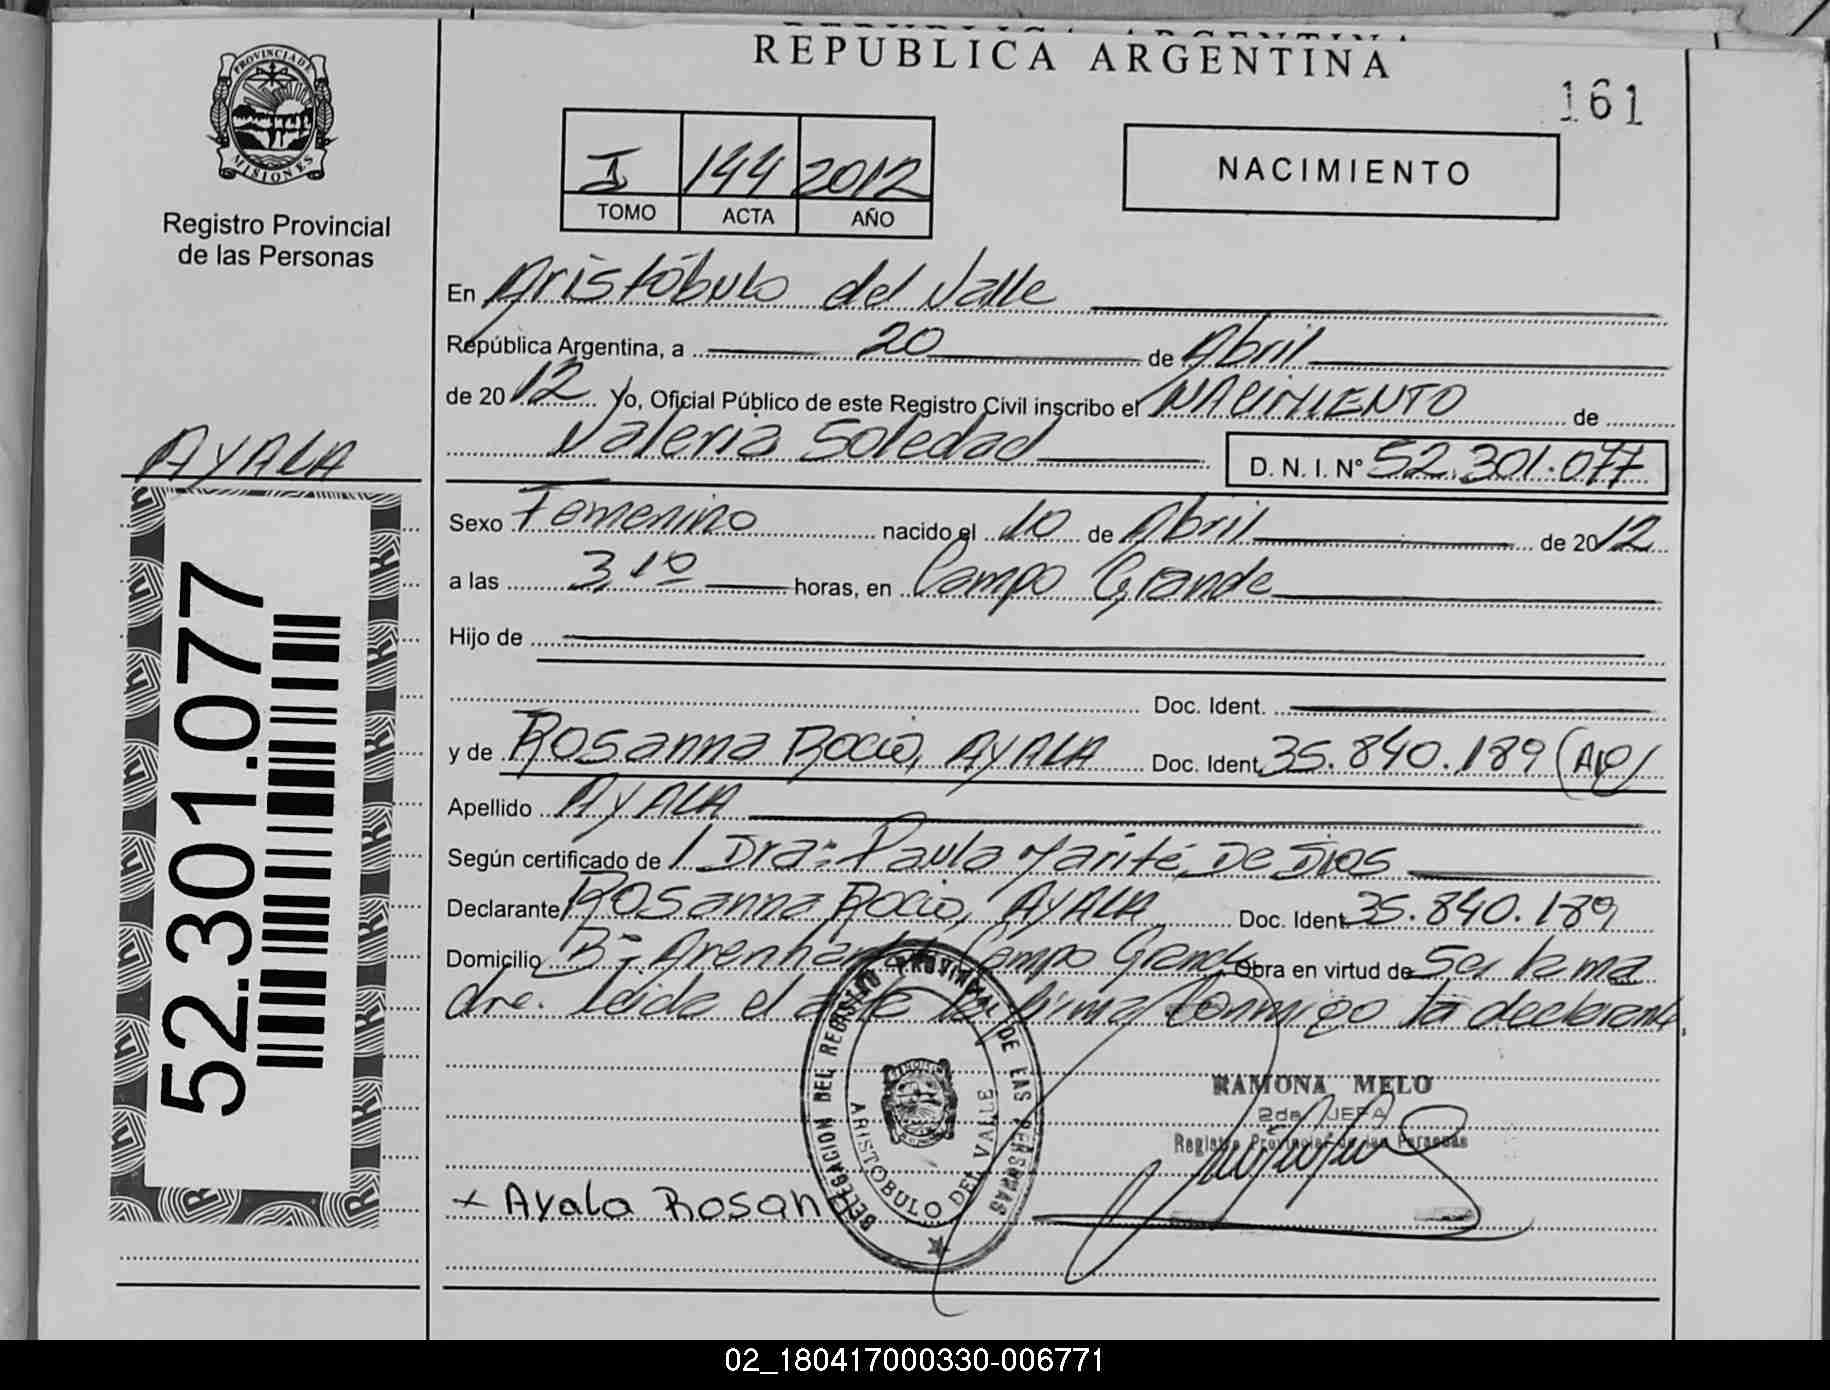 REPUBLICA ARGENTINA
161
PROVINCIA DE
MISIONES
Registro Provincial
de las Personas
I 144 2012
TOMO ACTA AÑO
NACIMIENTO
En Aristóbulo del Valle
República Argentina, a 20 de Abril
de 2012 Yo, Oficial Público de este Registro Civil inscribo el NACIMIENTO de
Valeria Soledad D. N. I. Nº 52.301.077
AYALA
Sexo Femenino nacido el 10 de Abril de 2012
a las 3,10 horas, en Campo Grande
Hijo de
Doc. Ident.
y de Rosanna Rocio, AYALA Doc. Ident. 35.840.189
Apellido AYALA
Según certificado de Dra: Paula Marité, De Dios
Declarante Rosanna Rocio, AYALA Doc. Ident. 35.840.189
Domicilio Bº Campo Grande Obra en virtud de Ser la ma
dre. Leida el acta la firma conmigo la declarante.
52.301.077
DELEGACION DEL REGISTRO PROVINCIAL DE LAS PERSONAS
ARISTOBULO DEL VALLE
RAMONA MELO
2da JEFA
Registro Provincial de las Personas
+ Ayala Rosan
02_180417000330-006771